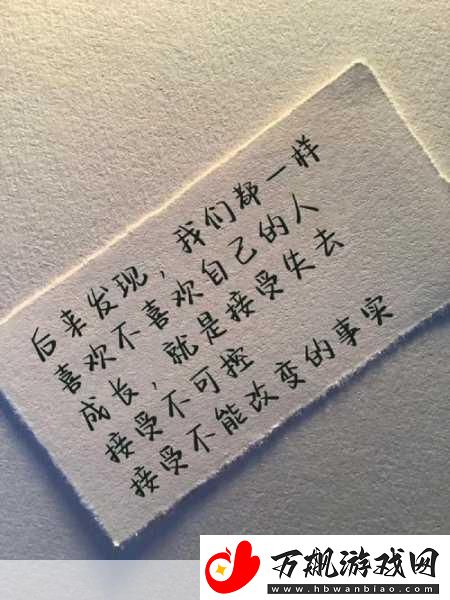 后来发现，我们都一样
喜欢不喜欢自己的人
成长，就是接受失去
接受不可控
接受不能改变的事实
万飙游戏网
www.hbwanbiao.com